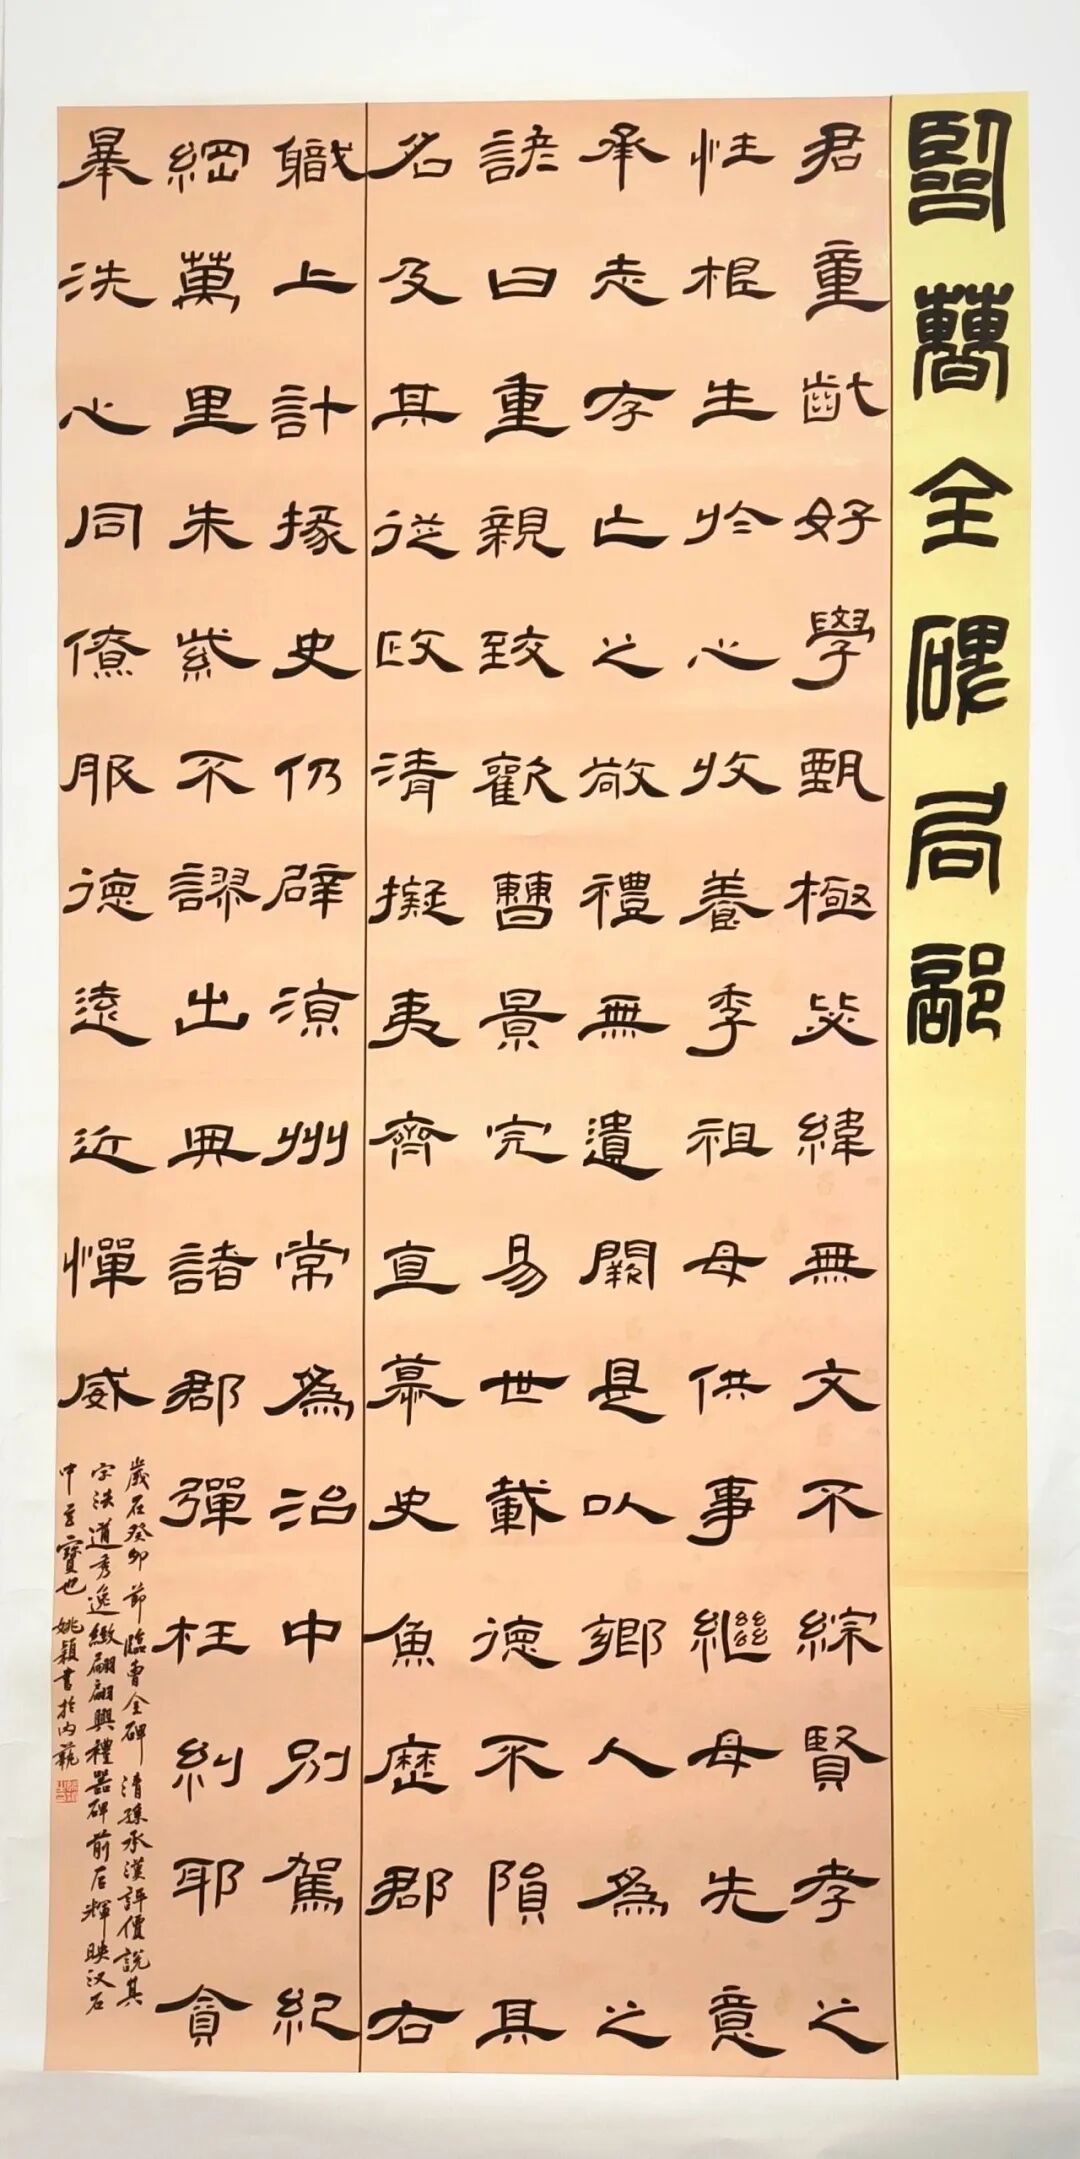 臨曹全碑局部
君童齔好學甄極毖緯無文不綜賢孝之
性根生於心收養季祖母供事繼母先意
承志存亡之敬禮無遺闕是以鄉人為之
諺曰重親致歡曹景完易世載德不隕其
名及其從政清擬夷齊直慕史魚歷郡右
職上計掾史仍辟涼州常為治中別駕紀
綱萬里朱紫不謬出典諸郡彈枉糾邪貪
暴洗心同僚服德遠近憚威
歲在癸卯節臨曹全碑 清孫承漢評價說其
字法遒秀逸緻翩翩與禮器碑前后輝映汉石
中至寶也 姚穎書於內